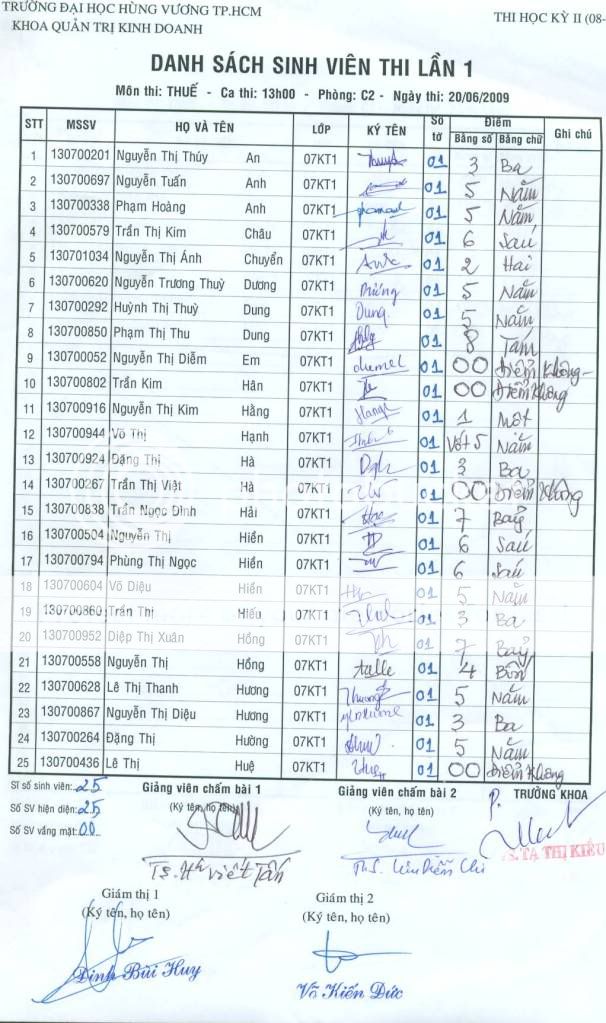 TRƯỜNG ĐẠI HỌC HÙNG VƯƠNG TP.HCM
THI HỌC KỲ II (08-
KHOA QUẢN TRỊ KINH DOANH
DANH SÁCH SINH VIÊN THI LẦN 1
Môn thi: THUẾ - Ca thi: 13h00 - Phòng: C2 - Ngày thi: 20/06/2009
STT MSSV HỌ VÀ TÊN LỚP KÝ TÊN Số tờ Điểm Ghi chú
Bằng số Bằng chữ
1 130700201 Nguyễn Thị Thúy An 07KT1 01 3 Ba
2 130700697 Nguyễn Tuấn Anh 07KT1 01 5 Năm
3 130700338 Phạm Hoàng Anh 07KT1 01 5 Năm
4 130700579 Trần Thị Kim Châu 07KT1 01 6 Sáu
5 130701034 Nguyễn Thị Ánh Chuyển 07KT1 01 2 Hai
6 130700620 Nguyễn Trương Thuỳ Dương 07KT1 01 5 Năm
7 130700292 Huỳnh Thị Thuỳ Dung 07KT1 Dung 01 5 Năm
8 130700850 Phạm Thị Thu Dung 07KT1 01 8 Tám
9 130700052 Nguyễn Thị Diễm Em 07KT1 01 00 Điểm Không
10 130700802 Trần Kim Hân 07KT1 01 00 Điểm Không
11 130700916 Nguyễn Thị Kim Hằng 07KT1 01 1 Một
12 130700944 Võ Thị Hạnh 07KT1 01 Vớt 5 Năm
13 130700924 Đặng Thị Hà 07KT1 01 3 Ba
14 130700267 Trần Thị Việt Hà 07KT1 01 00 Điểm Không
15 130700838 Trần Ngọc Đình Hải 07KT1 01 7 Bảy
16 130700504 Nguyễn Thị Hiền 07KT1 01 6 Sáu
17 130700794 Phùng Thị Ngọc Hiền 07KT1 01 6 Sáu
18 130700604 Võ Diệu Hiền 07KT1 01 5 Năm
19 130700860 Trần Thị Hiếu 07KT1 01 3 Ba
20 130700952 Diệp Thị Xuân Hồng 07KT1 01 7 Bảy
21 130700558 Nguyễn Thị Hồng 07KT1 01 4 Bốn
22 130700628 Lê Thị Thanh Hương 07KT1 01 5 Năm
23 130700867 Nguyễn Thị Diệu Hương 07KT1 01 3 Ba
24 130700264 Đặng Thị Hường 07KT1 01 5 Năm
25 130700436 Lê Thị Huệ 07KT1 01 00 Điểm Không
Sĩ số sinh viên: 25 Giảng viên chấm bài 1 Giảng viên chấm bài 2 P. TRƯỞNG KHOA
Số SV hiện diện: 25 (Ký tên, họ tên) (Ký tên, họ tên)
Số SV vắng mặt: 00
TS. Hà Viết Tấn
TS. TẠ THỊ KIỀU
Giám thị 1 Giám thị 2
(Ký tên, họ tên) (Ký tên, họ tên)
Đinh Bùi Huy
Võ Kiến Đức